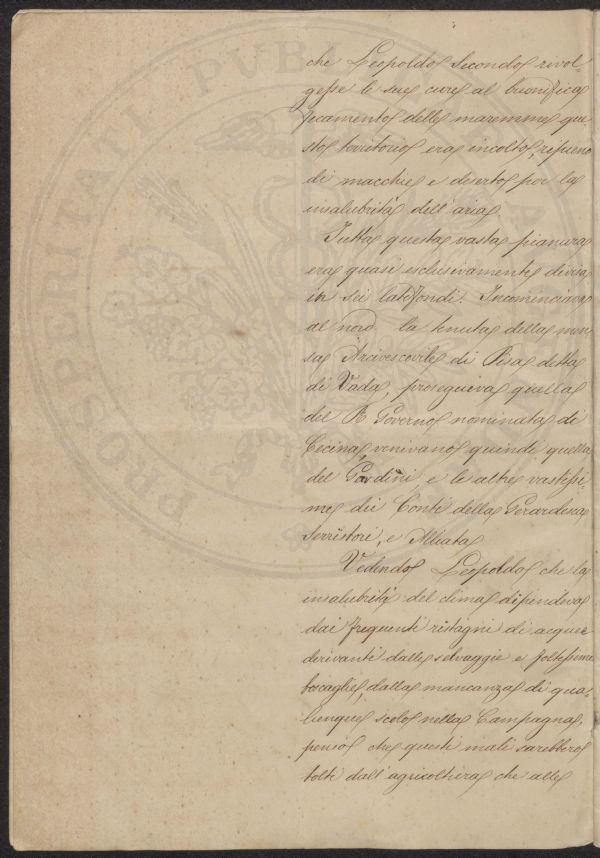 che Leopoldo Secondo rivol-
gesse le sue cure al buonifica
camento delle maremme que
sto territorio era incolto, ripieno
di macchie e deserto per la
insalubrità dell'aria.
Tutta questa vasta pianura
era quasi esclusivamente divisa
in sei latifondi. Incominciava
al nord la tenuta della men
sa Arcivescovile di Pisa detta
di Vada, proseguiva quella
del R. Governo nominata di
Cecina, venivano quindi quella
del Gardini e le altre vastissi
me dei Conti della Gerardesca
Serristori, e Alliata
Vedendo Leopoldo che la
insalubrità del clima dipendeva
dai frequenti ristagni di acque
derivanti dalle selvaggie e foltissime
boscaglie, dalla mancanza di qua-
lunque scolo nella Campagna,
pensò che questi mali sarebbero
tolti dall'agricoltura che alle
PROSPERITATI PUBLICAE